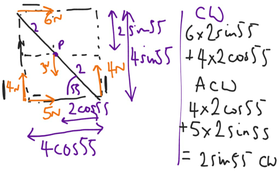 6N
2
P
2sin55
4sin55
3
2
4N
4N
55
5N
2cos55
4cos55
CW
6×2sin55
+4×2cos55
ACW
4×2cos55
+5×2sin55
=2sin55 CW